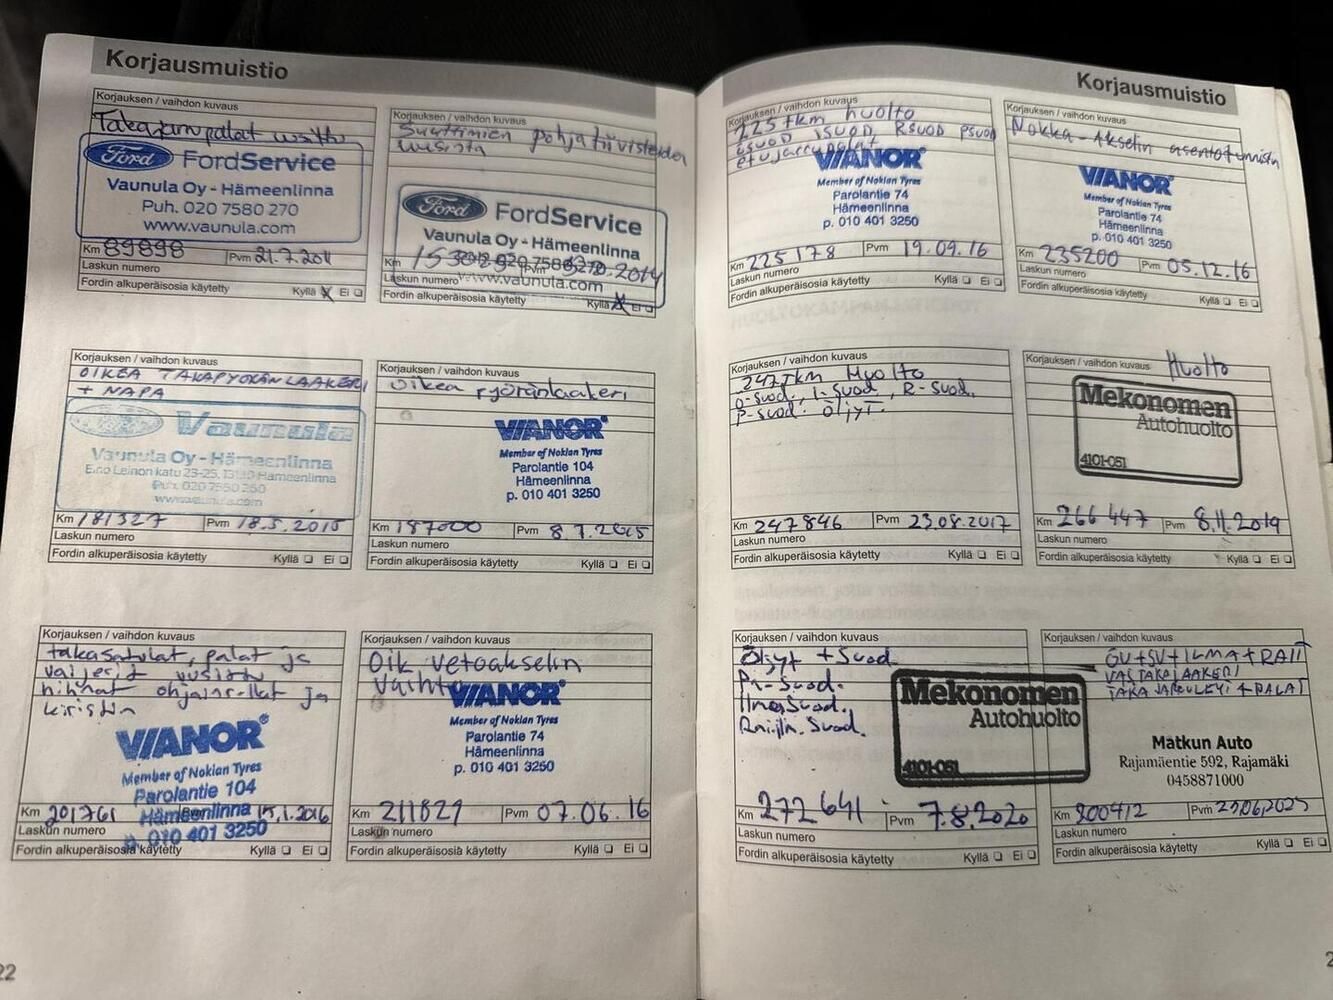 Korjausmuistio
Korjauksen / vaihdon kuvaus
Takajarrupalat uusittu
Ford FordService
Vaunula Oy - Hämeenlinna
Puh. 020 7580 270
www.vaunula.com
Km 89898 Pvm 21.7.2011
Laskun numero
Fordin alkuperäisosia käytetty Kyllä X Ei
Korjauksen / vaihdon kuvaus
Suuttimien pohjatiivisteiden
uusinta
Ford FordService
Vaunula Oy - Hämeenlinna
Puh. 020 7580 270
Km Pvm 2014
Laskun numero www.vaunula.com
Fordin alkuperäisosia käytetty Kyllä X Ei
Korjauksen / vaihdon kuvaus
OIKEA TAKAPYÖRÄNLAAKERI
+ NAPA
Vaunula
Vaunula Oy - Hämeenlinna
Eino Leinon katu 23-25, Hämeenlinna
Puh.
www.vaunula.com
Km 181327 Pvm 18.5.2015
Laskun numero
Fordin alkuperäisosia käytetty Kyllä Ei
Korjauksen / vaihdon kuvaus
Oikea pyöränlaakeri
VIANOR
Member of Nokian Tyres
Parolantie 104
Hämeenlinna
p. 010 401 3250
Km 187000 Pvm 8.7.2015
Laskun numero
Fordin alkuperäisosia käytetty Kyllä Ei
Korjauksen / vaihdon kuvaus
takasatulat, palat ja
vaijerit uusittu
hihnat ohjainrullat ja
kiristin
VIANOR
Member of Nokian Tyres
Parolantie 104
Km 201761 Hämeenlinna 15.1.2016
Laskun numero p. 010 401 3250
Fordin alkuperäisosia käytetty Kyllä Ei
Korjauksen / vaihdon kuvaus
Oik vetoakselin
vaihto
VIANOR
Member of Nokian Tyres
Parolantie 74
Hämeenlinna
p. 010 401 3250
Km 211821 Pvm 07.06.16
Laskun numero
Fordin alkuperäisosia käytetty Kyllä Ei
22
Korjausmuistio
Korjauksen / vaihdon kuvaus
225 tkm huolto
ösuod, isuod, Rsuod psuod
etujarrupalat
VIANOR
Member of Nokian Tyres
Parolantie 74
Hämeenlinna
p. 010 401 3250
Km 225178 Pvm 19.09.16
Laskun numero
Fordin alkuperäisosia käytetty Kyllä Ei
Korjauksen / vaihdon kuvaus
Nokka-Akselin asentotunnistin
VIANOR
Member of Nokian Tyres
Parolantie 74
Hämeenlinna
p. 010 401 3250
Km 235200 Pvm 05.12.16
Laskun numero
Fordin alkuperäisosia käytetty Kyllä Ei
Korjauksen / vaihdon kuvaus
247 tkm Huolto
ö-suod., I-suod, R-Suod,
P-suod. öljyt.
Km 247846 Pvm 23.08.2017
Laskun numero
Fordin alkuperäisosia käytetty Kyllä Ei
Korjauksen / vaihdon kuvaus
Huolto
Mekonomen
Autohuolto
4101-051
Km 266447 Pvm 8.11.2019
Laskun numero
Fordin alkuperäisosia käytetty Kyllä Ei
Korjauksen / vaihdon kuvaus
Öljyt + Suod.
Pa-Suod.
Ilmasuod.
Raitilm. Suod.
Mekonomen
Autohuolto
4101-051
Km 272641 Pvm 7.8.2020
Laskun numero
Fordin alkuperäisosia käytetty Kyllä Ei
Korjauksen / vaihdon kuvaus
ÖV+SV+ILMA+RAIT
VASTAKELAAKERI
TAKA JARRULEVY + PALAT
Matkun Auto
Rajamäentie 592, Rajamäki
0458871000
Km 300412 Pvm
Laskun numero
Fordin alkuperäisosia käytetty Kyllä Ei